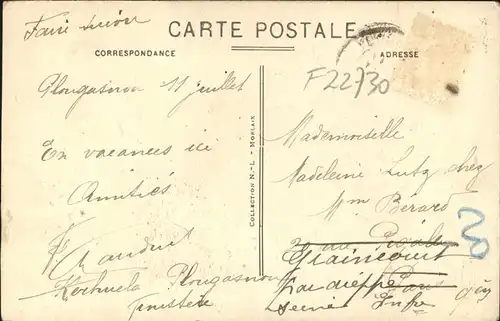 Faire suivre
CARTE POSTALE
CORRESPONDANCE
ADRESSE
F22730
Plougasnou 11 juillet
En vacances ici
Amitiés
Plougasnou
Finistère
COLLECTION N.-L. - MORLAIX
Mademoiselle
Madeleine Lutz chez
Mme Bérard
rue Pigalle
Graincourt
par dieppe Paris
Seine Infre
20